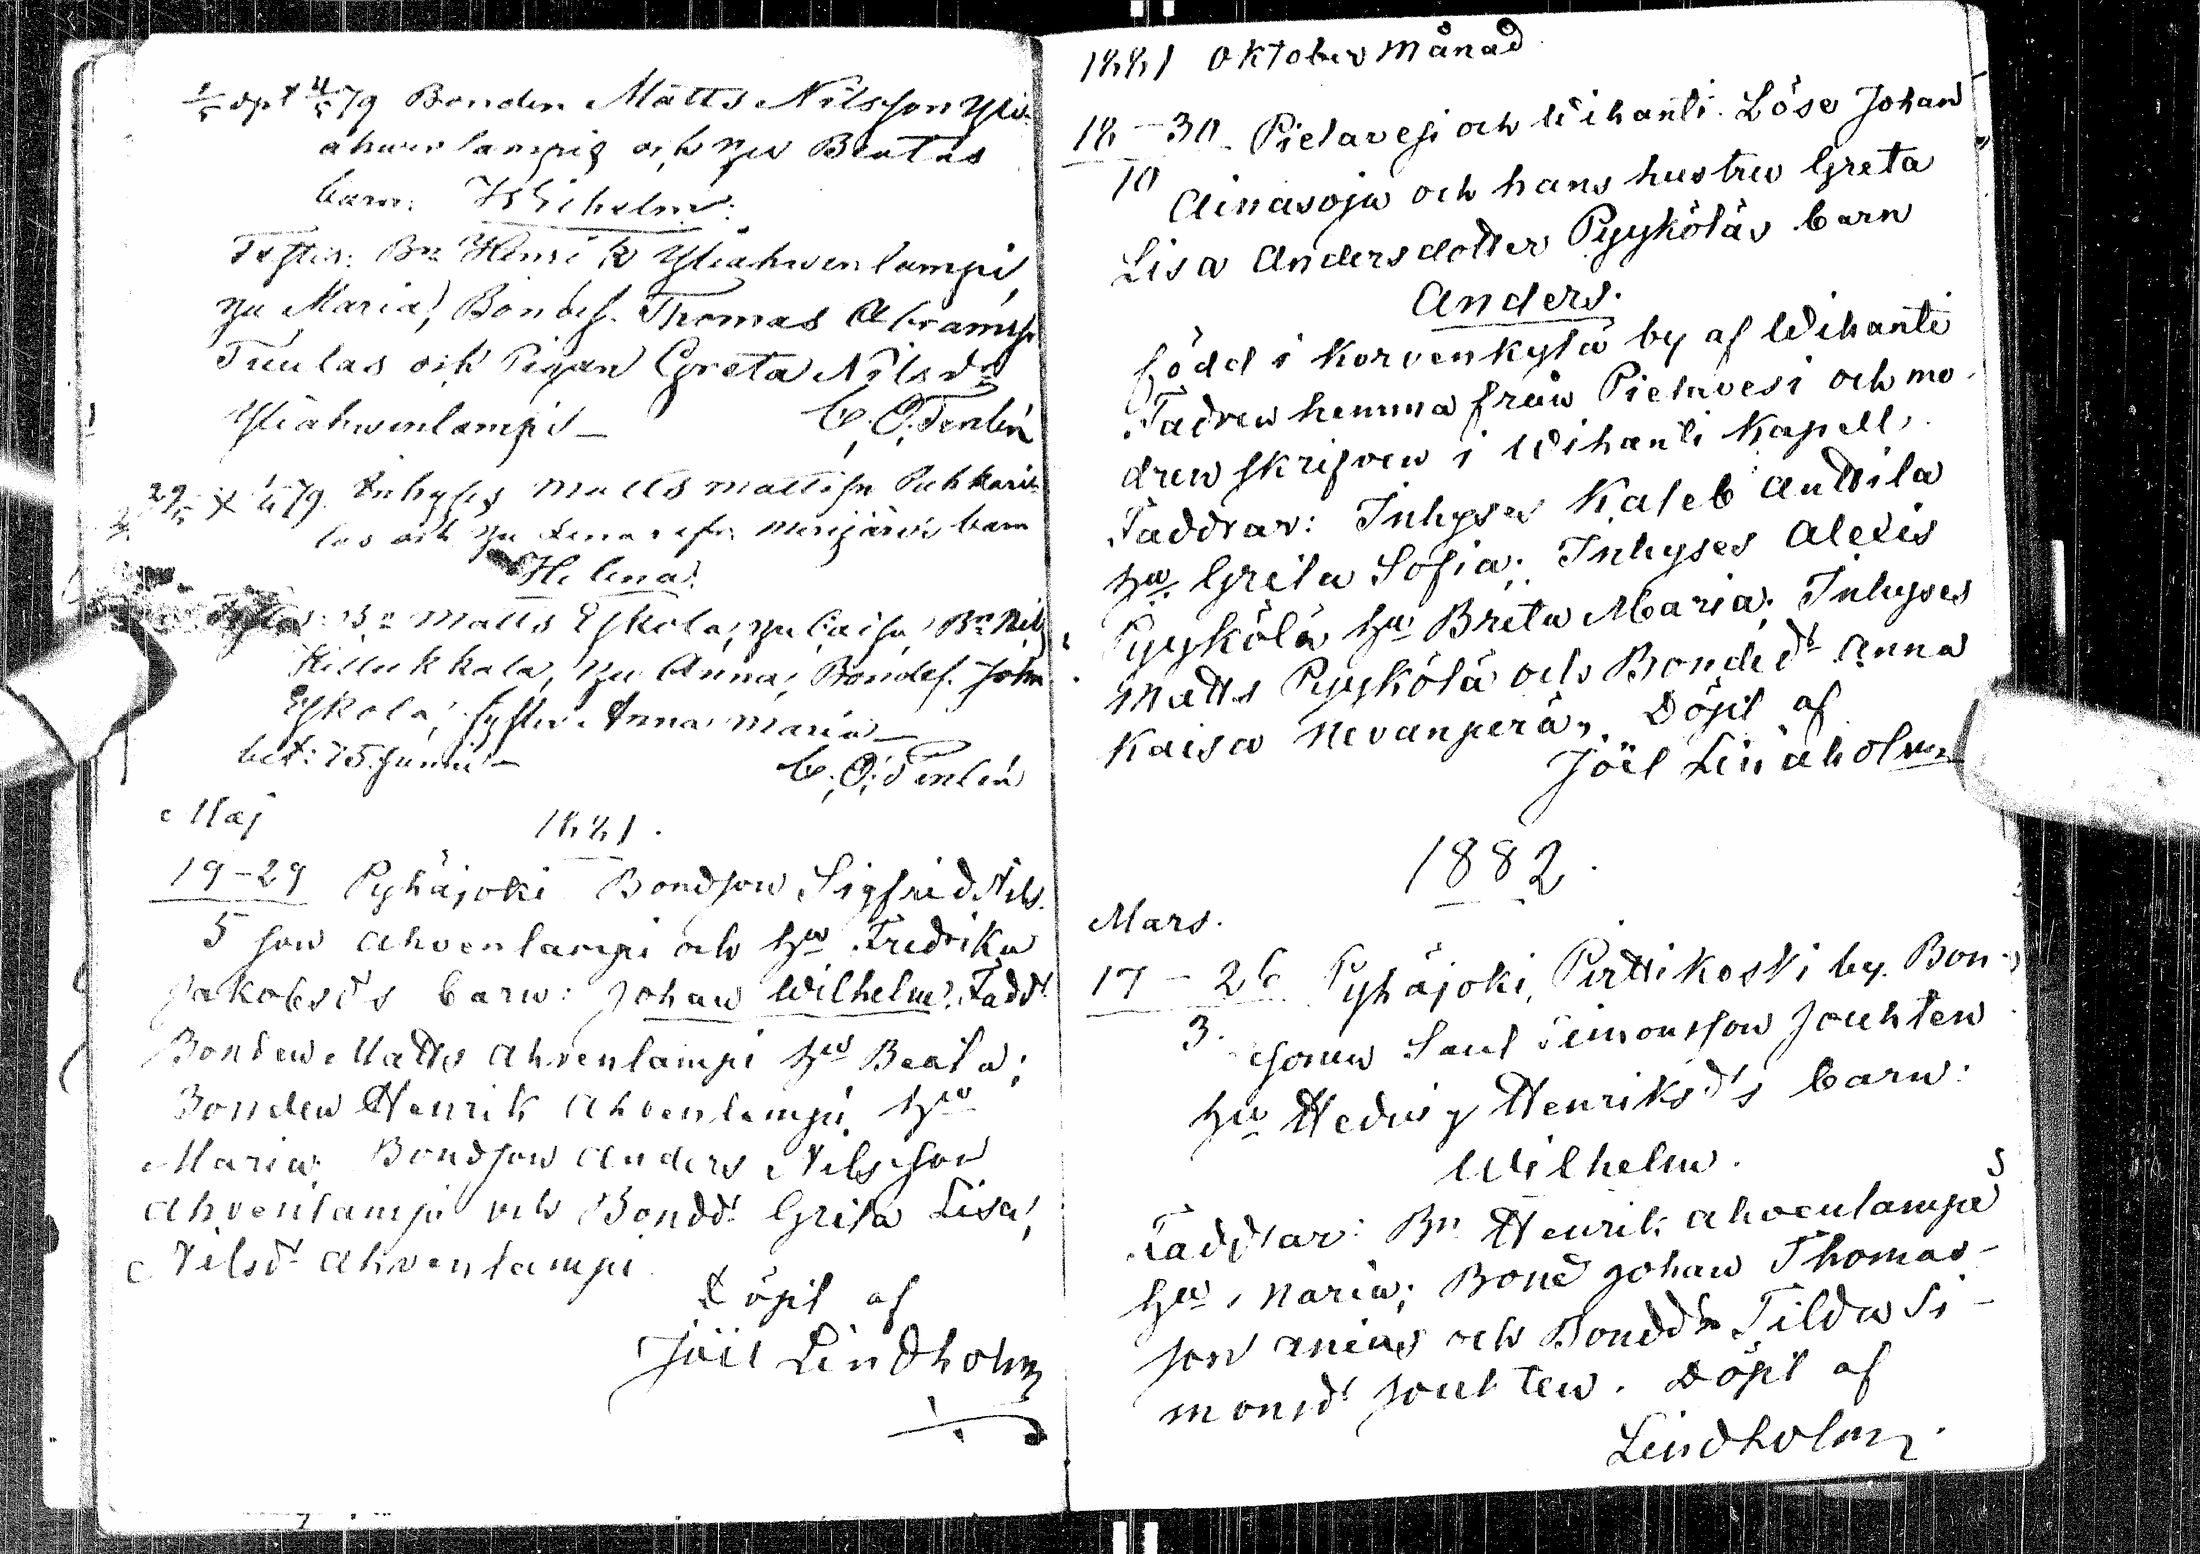 1/5 dpt 4/5 79 Bonden Matts Nilsson Yli-
ahvenlampis och hu Beatas
barn: Wilhelm.
Testes: Bn Henrik Yliahwenlampi,
hu Maria; Bondes. Thomas Abramsn
Tuulas och Pigan Greta Nilsdr
Yliahwenlampis — C. O. Tenlén
79 Inhyses Matts Mattsn Puhkari-
las och hu Lena Merijärvi barn
Helena.
Bn Matts Eskola, hu Caisa, Bn Nils
Hillukkala, hu Anna, Bondes. John
Eskola, syster Anna Maria —
bet: 15 Junii — C. O. Tenlén
Maj 1881.
19-29 Pyhäjoki Bondson Sigfrid Nils-
5 son Ahvenlampi och hu Fredrika
Jakobsds barn: Johan Wilhelm. Fadd.
Bonden Matts Ahvenlampi hu Beata;
Bonden Henrik Ahvenlampi hu
Maria; Bondson Anders Nilsson
Ahvenlampi och Bondd. Greta Lisa,
Nilsd. Ahvenlampi
Döpt af
Joël Lindholm
1881 Oktober Månad
18-30 Pielavesi och Wihanti. Löse Johan
10 Ainasoja och hans hustru Greta
Lisa Andersdotter Pyyköläs barn
Anders.
född i Korvenkylä by af Wihanti
Fadren hemma från Pielavesi och mo-
dren skrifven i Wihanti Kapell.
Faddrar: Inhyses Kaleb Anttila
hu Greta Sofia; Inhyses Alexis
Pyykölä hu Breta Maria; Inhyses
Matts Pyykölä och Bonded. Anna
Kaisa Nevanperä. Döpt af
Joël Lindholm
1882.
Mars.
17-26 Pyhäjoki, Pirttikoski by. Bon-
3. sonen Saul Simonsson Jouhten
hu Hedvig Henriksd's barn:
Wilhelm.
Faddrar: Bn Henrik Ahvenlampi
hu Maria; Bond Johan Thomas-
son Anias och Bondd. Tilda Si-
monsd. Jouhten. Döpt af
Lindholm.